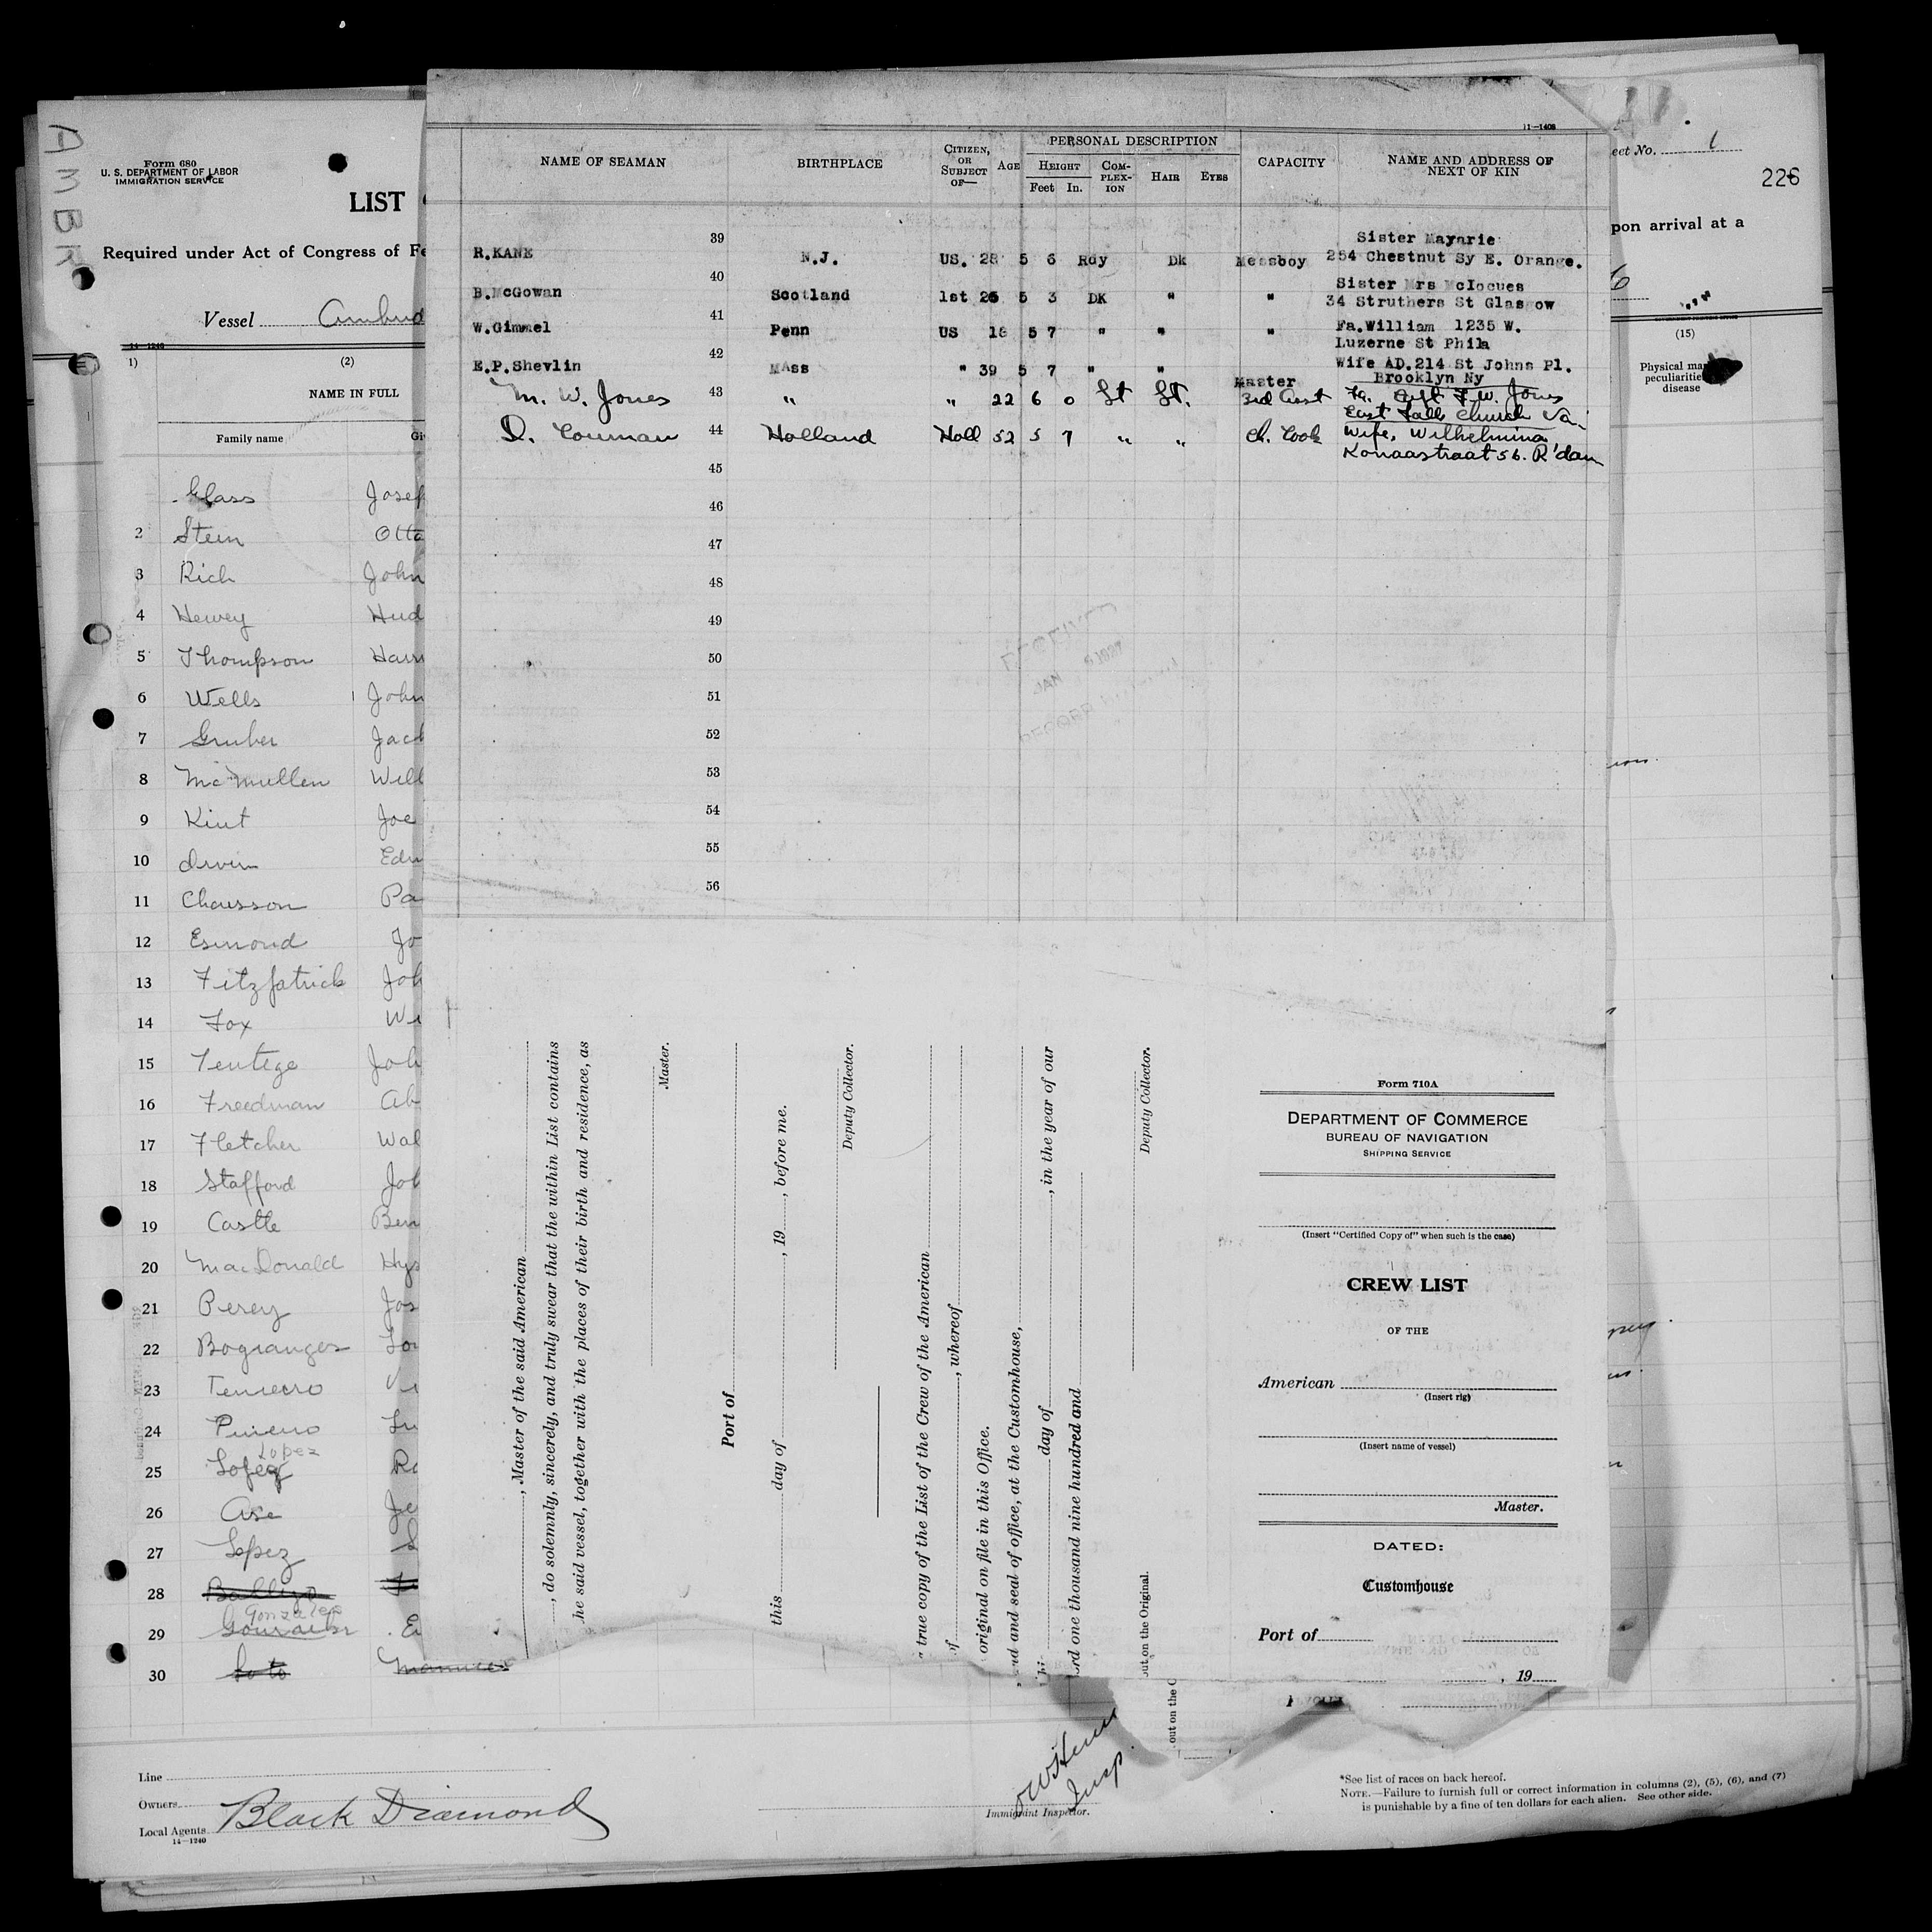 AMBR
Form 680
U. S. DEPARTMENT OF LABOR
IMMIGRATION SERVICE
LIST
Required under Act of Congress of Fe
Vessel
14-1240
1)
(2)
NAME IN FULL
Family name
Glass Josef
2 Stein Otto
3 Rich John
4 Hewey Hud
5 Thompson Harr
6 Wells John
7 Gruber Jack
8 McMullen Will
9 Kint Joe
10 Irvin Edw
11 Chausson Pa
12 Esmond Jo
13 Fitzpatrick Joh
14 Fox Wi
15 Joh
16 Freedman Ab
17 Fletcher Wal
18 Stafford Joh
19 Castle Ben
20 MacDonald
21 Perey Jos
22 Bogranges
23
24
Lopez
25
26 Ase Je
27 Lopez
28
Gonzales
29
30 Soto
Line
Owners
Local Agents Black Diamond
14-1240
11-1408
NAME OF SEAMAN
BIRTHPLACE
CITIZEN, OR SUBJECT OF—
AGE
PERSONAL DESCRIPTION
HEIGHT
Feet In.
COM-PLEX-ION
HAIR
EYES
CAPACITY
NAME AND ADDRESS OF NEXT OF KIN
39 Sister Mayarie
R.KANE N.J. US. 28 5 6 Rdy Dk Messboy 254 Chestnut Sy E. Orange.
40 Sister Mrs McIocues
B.McGowan Scotland 1st 25 5 3 DK " " 34 Struthers St Glasgow
41
W.Gimmel Penn US 18 5 7 " " " Fa.William 1235 W.
Luzerne St Phila
42
E.P.Shevlin MAss " 39 5 7 " " Master Wife AD.214 St Johns Pl.
Brooklyn Ny
M. W. Jones 43 " " 22 6 0 Lt Lt. 3rd Asst Fa. Capt F.W. Jones
East Falls Church Va.
D. Couman 44 Holland Holl 52 5 7 " " Ch. Cook Wife, Wilhelmina
56. R'dam
45
46
47
48
49
50
51
52
53
54
55
56
RECEIVED
JAN
RECORD
, Master of the said American
, do solemnly, sincerely, and truly swear that the within List contains
he said vessel, together with the places of their birth and residence, as
Master.
Port of
this day of , 19 , before me.
Deputy Collector.
true copy of the List of the Crew of the American
of , whereof
original on file in this Office.
and seal of office, at the Customhouse,
day of , in the year of our
ord one thousand nine hundred and
Deputy Collector.
out on the Original.
out on the O
Form 710A
DEPARTMENT OF COMMERCE
BUREAU OF NAVIGATION
SHIPPING SERVICE
(Insert "Certified Copy of" when such is the case)
CREW LIST
OF THE
American
(Insert rig)
(Insert name of vessel)
Master.
DATED:
Customhouse
Port of
, 19
eet No. 1
226
pon arrival at a
6
(15)
Physical mar
peculiarities
disease
Insp.
Immigrant Inspector.
*See list of races on back hereof.
NOTE.—Failure to furnish full or correct information in columns (2), (5), (6), and (7)
is punishable by a fine of ten dollars for each alien. See other side.